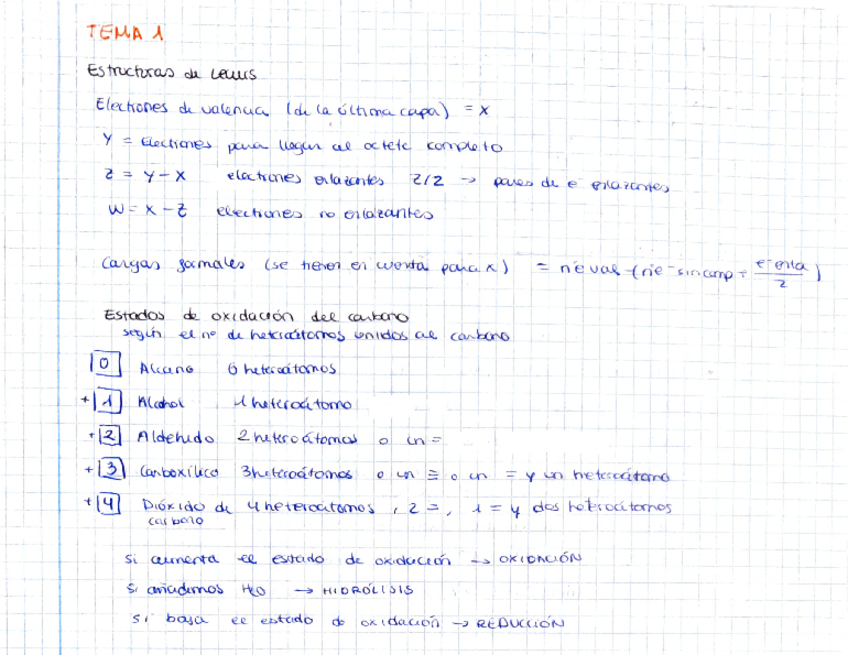 TEMA 1
Estructuras de Lewis
Electrones de valencia (de la última capa) = X
Y = electrones para llegar al octete completo
Z = Y - X electrones enlazantes Z/2 → pares de e⁻ enlazantes
W = X - Z electrones no enlazantes
Cargas formales (se tienen en cuenta para X) = nºe⁻val - (nºe⁻ sin comp + e⁻ enla / 2)
Estados de oxidación del carbono
según el nº de heteroátomos unidos al carbono
0 Alcano 0 heteroátomos
+1 Alcohol 1 heteroátomo
+2 Aldehído 2 heteroátomos o un =
+3 Carboxílico 3 heteroátomos o un ≡ o un = y un heteroátomo
+4 Dióxido de 4 heteroátomos, 2 =, 1 = y dos heteroátomos
carbono
Si aumenta el estado de oxidación → OXIDACIÓN
Si añadimos H₂O → HIDRÓLISIS
Si baja el estado de oxidación → REDUCCIÓN